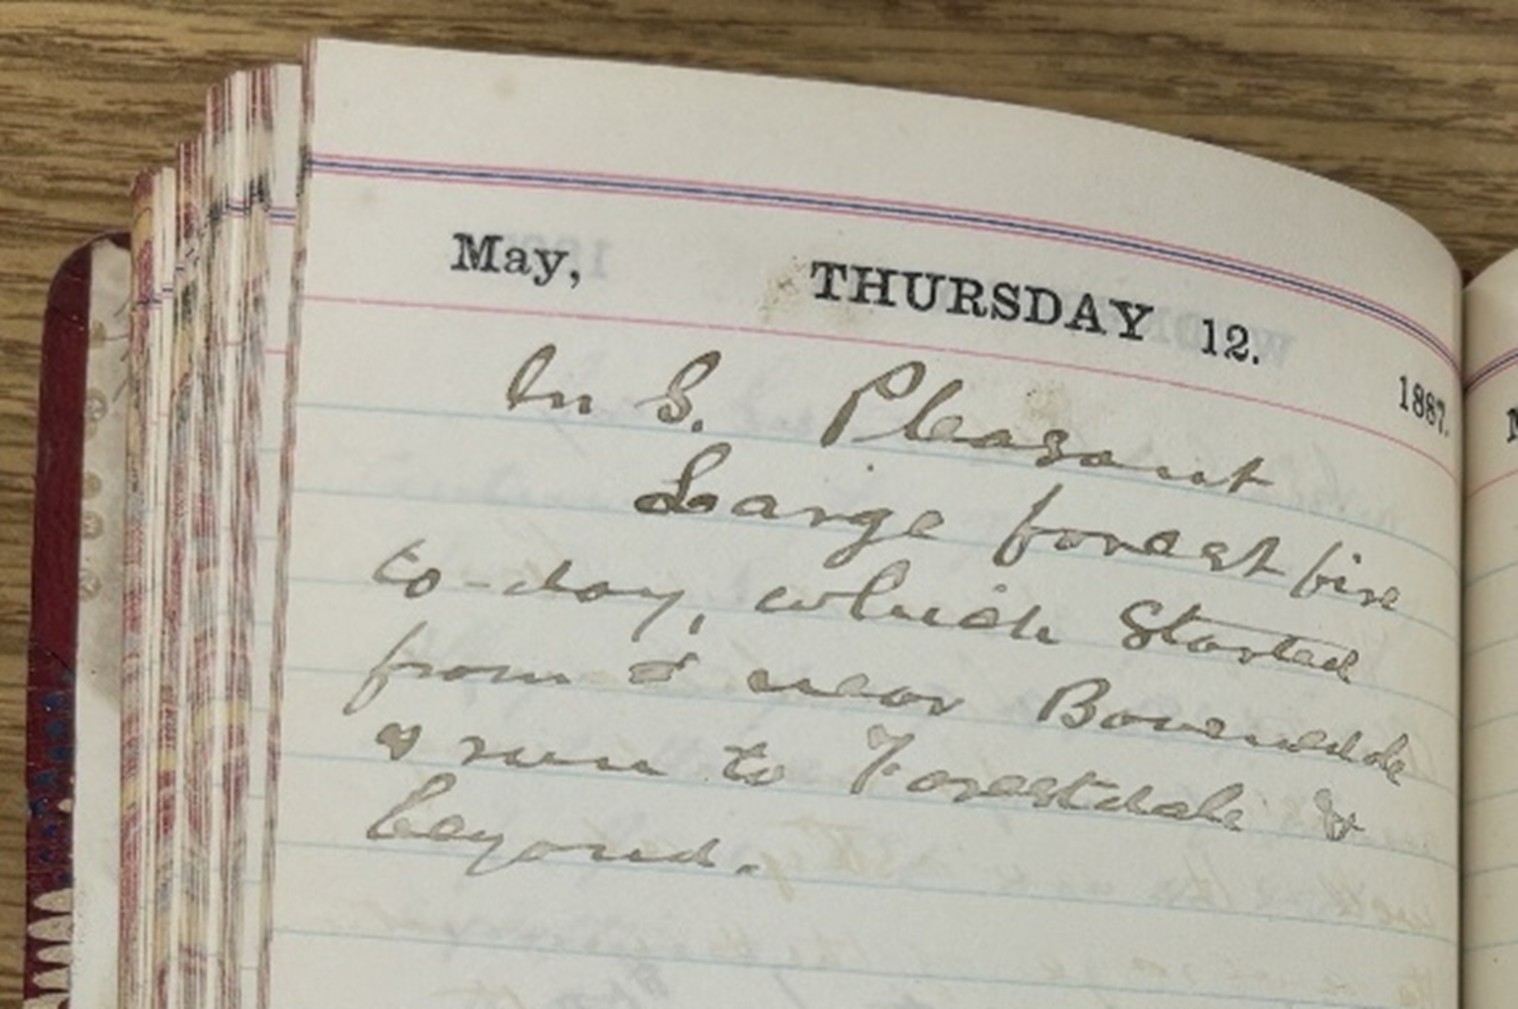 May, THURSDAY 12. 1887.
In S. Pleasant
Large forest fire
to-day, which started
from & near Bournedale
& run to Forestdale &
beyond.